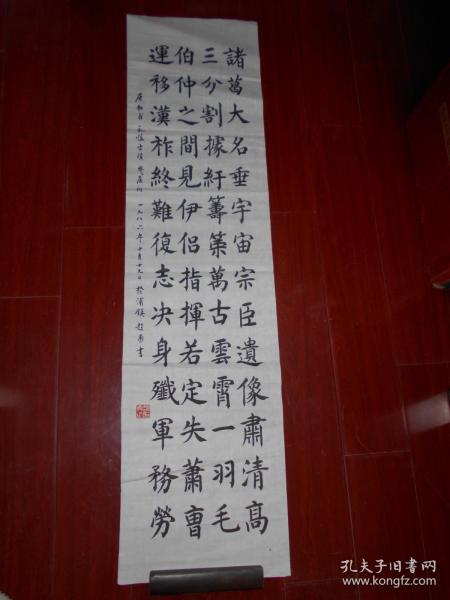 諸葛大名垂宇宙宗臣遺像肅清高
三分割據紆籌策萬古雲霄一羽毛
伯仲之間見伊侶指揮若定失蕭曹
運移漢祚終難復志决身殲軍務勞
一九八六年十月十九日於浦鎮趙書
孔夫子旧书网
www.kongfz.com